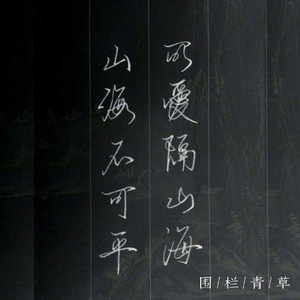 所爱隔山海
山海不可平
围/栏/青/草